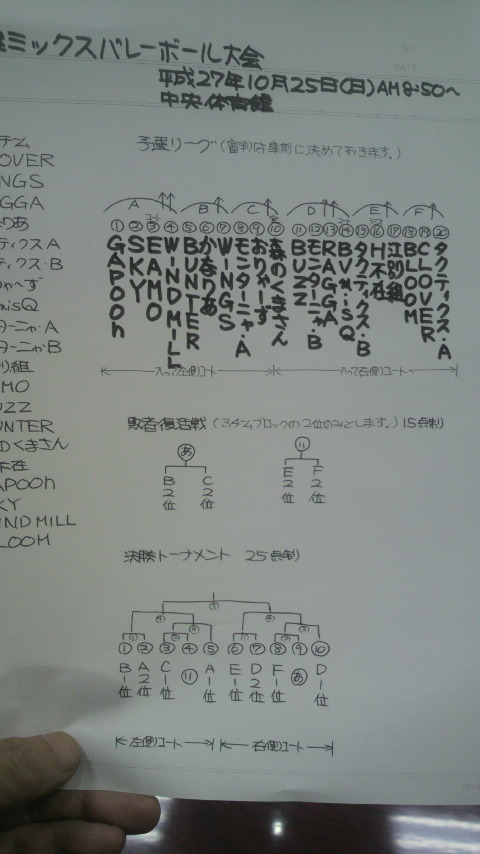 ミックスバレーボール大会
平成27年10月25日(日)AM8:50～
中央体育館
予選リーグ(審判は事前に決めておきます。)
A B C D E F
① ② ③ ④ ⑤ ⑥ ⑦ ⑧ ⑨ ⑩ ⑪ ⑫ ⑬ ⑭ ⑮ ⑯ ⑰ ⑱ ⑲ ⑳
GAPOOn
SKY
EMO
WINDMILL
BUNTER
かなりあ
WINGS
モンターニャ・A
おりゃーず
森のくまさん
BUZZ
モンターニャ・B
RAGGA
タクティクス・B
H不在
江別組
BLOOM
CLOVER
タクティクス・A
入って左側コート
入って右側コート
敗者復活戦(3チームブロックの2位のみとします。)15点制
あ い
B2位 C2位 E2位 F2位
決勝トーナメント 25点制
① ② ③ ④ ⑤ ⑥ ⑦ ⑧ ⑨ ⑩
B1位 A2位 C1位 い A1位 E1位 D2位 F1位 あ D1位
左側コート 右側コート
テム
OVER
NGS
GGA
りあ
ティクスA
ティクス・B
ゃーず
isQ
ターニャ・A
ターニャ・B
り組
MO
UZZ
UNTER
くまさん
不在
APOOn
KY
INDMILL
LOOM